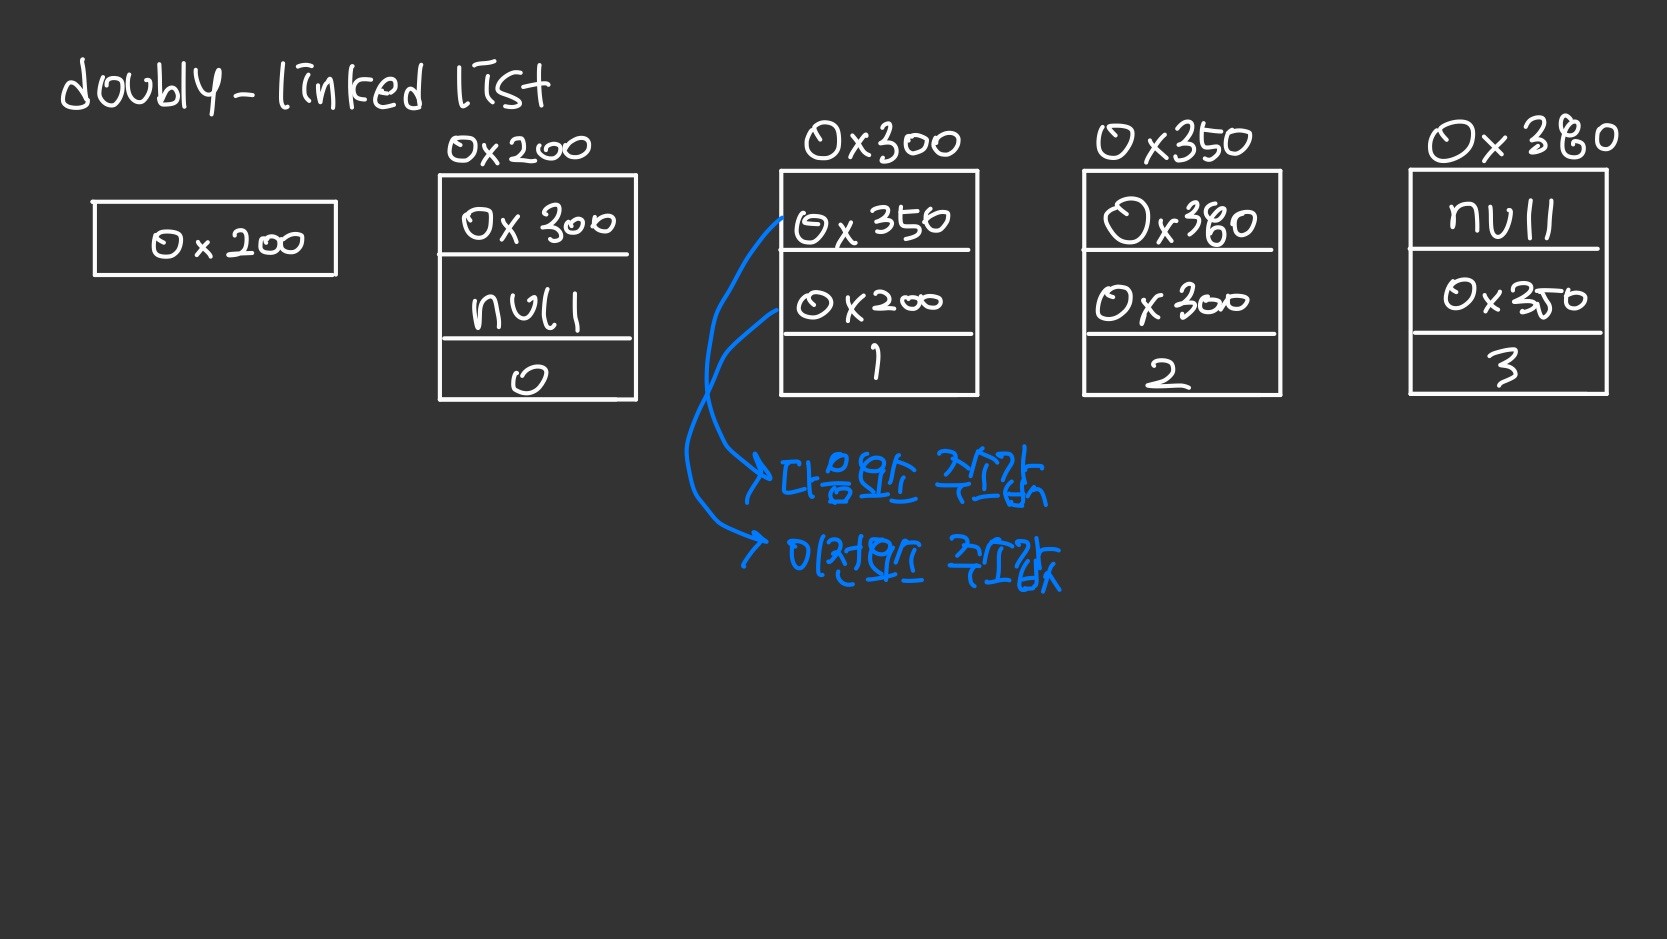 doubly-linked list
0x200
0x200
0x300
null
0
0x300
0x350
0x200
1
0x350
0x380
0x300
2
0x380
null
0x350
3
다음요소 주소값
이전요소 주소값